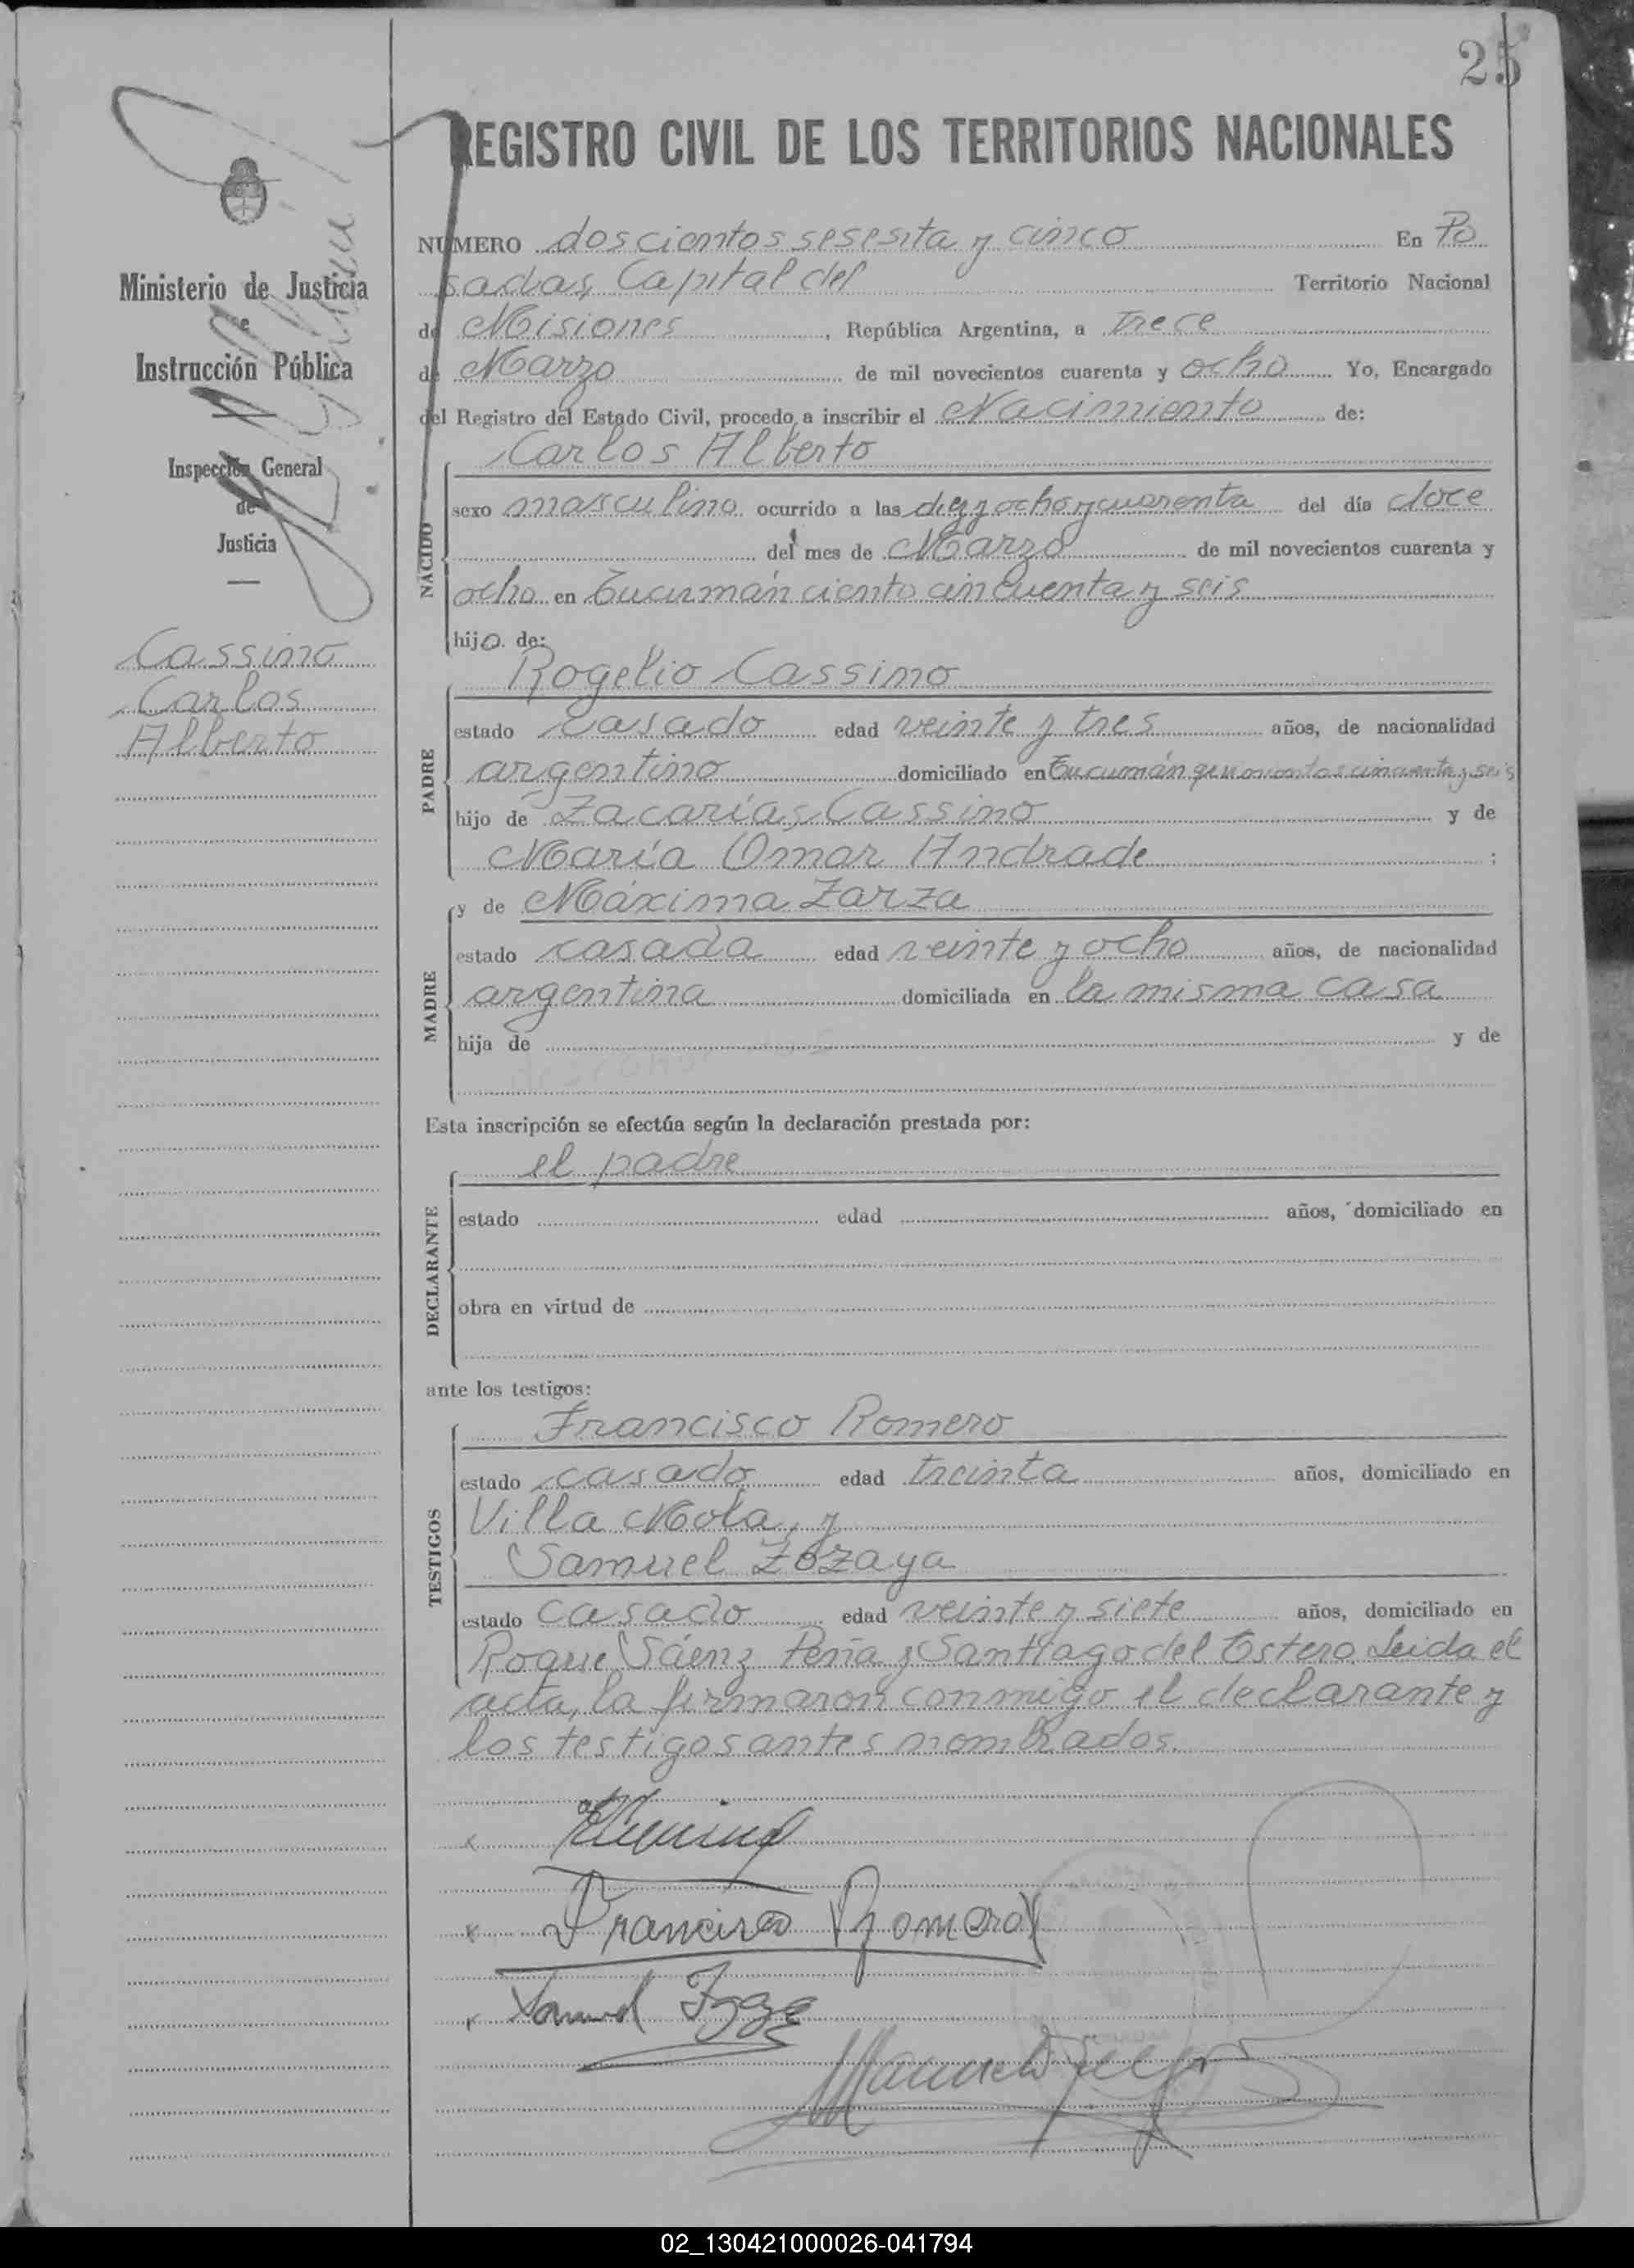 25
REGISTRO CIVIL DE LOS TERRITORIOS NACIONALES
Ministerio de Justicia
e
Instrucción Pública
Inspección General
de
Justicia
Cassino
Carlos
Alberto
NUMERO doscientos sesesita y cinco En Po
sadas, Capital del Territorio Nacional
de Misiones, República Argentina, a trece
de Marzo de mil novecientos cuarenta y ocho Yo, Encargado
del Registro del Estado Civil, procedo a inscribir el Nacimiento de:
NACIDO
Carlos Alberto
sexo masculino ocurrido a las diez y ocho y cuarenta del día doce
del mes de Marzo de mil novecientos cuarenta y
ocho en Tucumán ciento cincuenta y seis
hijo de:
PADRE
Rogelio Cassino
estado casado edad veinte y tres años, de nacionalidad
argentino domiciliado en Tucumán cincuenta y seis
hijo de Zacarías Cassino y de
María Omar Andrade ;
MADRE
y de Máxima Zarza
estado casada edad veinte y ocho años, de nacionalidad
argentina domiciliada en la misma casa
hija de y de
Esta inscripción se efectúa según la declaración prestada por:
DECLARANTE
el padre
estado edad años, domiciliado en
obra en virtud de
ante los testigos:
TESTIGOS
Francisco Romero
estado casado edad treinta años, domiciliado en
Villa Mola, y
Samuel Zozaya
estado casado edad veinte y siete años, domiciliado en
Roque Sáenz Peña y Santiago del Estero. Leida el
acta, la firmaron conmigo el declarante y
los testigos antes nombrados.
Francisco Romero
Samuel
02_130421000026-041794